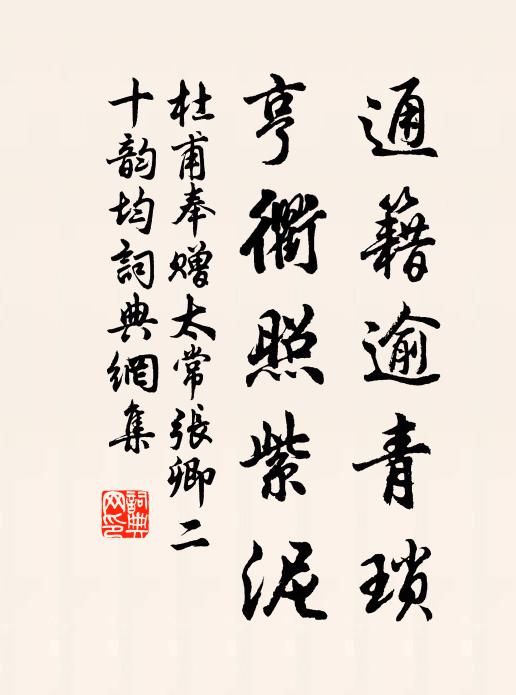 通籍逾青瑣
亨衢照紫泥
杜甫奉贈太常張卿二
十韵均詞典網集
詞典網印